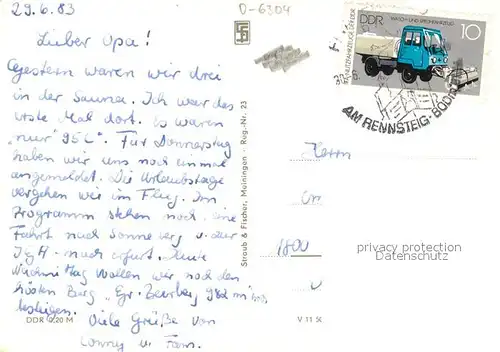 29.6.83
D-6304
Lieber Opa!
Gestern waren wir drei
in der Sauna. Ich war das
erste Mal dort. Es waren
"nur" 95C°. Für Donnerstag
haben wir uns noch einmal
angemeldet. Die Urlaubstage
vergehen wie im Flug. Im
Programm stehen noch eine
Fahrt nach Sonneberg u. zur
IgH nach Erfurt. Heute
Nachmittag wollen wir noch den
Berg "Gr. Beerberg 982 m
besteigen. Viele Grüße von
Conny u. Fam.
DDR 0,20 M
Straub & Fischer, Meiningen - Reg.-Nr. 23
V 11 50
DDR
WASCH- UND SPRÜHFAHRZEUG
NUTZFAHRZEUGE DER DDR
10
AM RENNSTEIG
Herrn
1800
privacy protection
Datenschutz